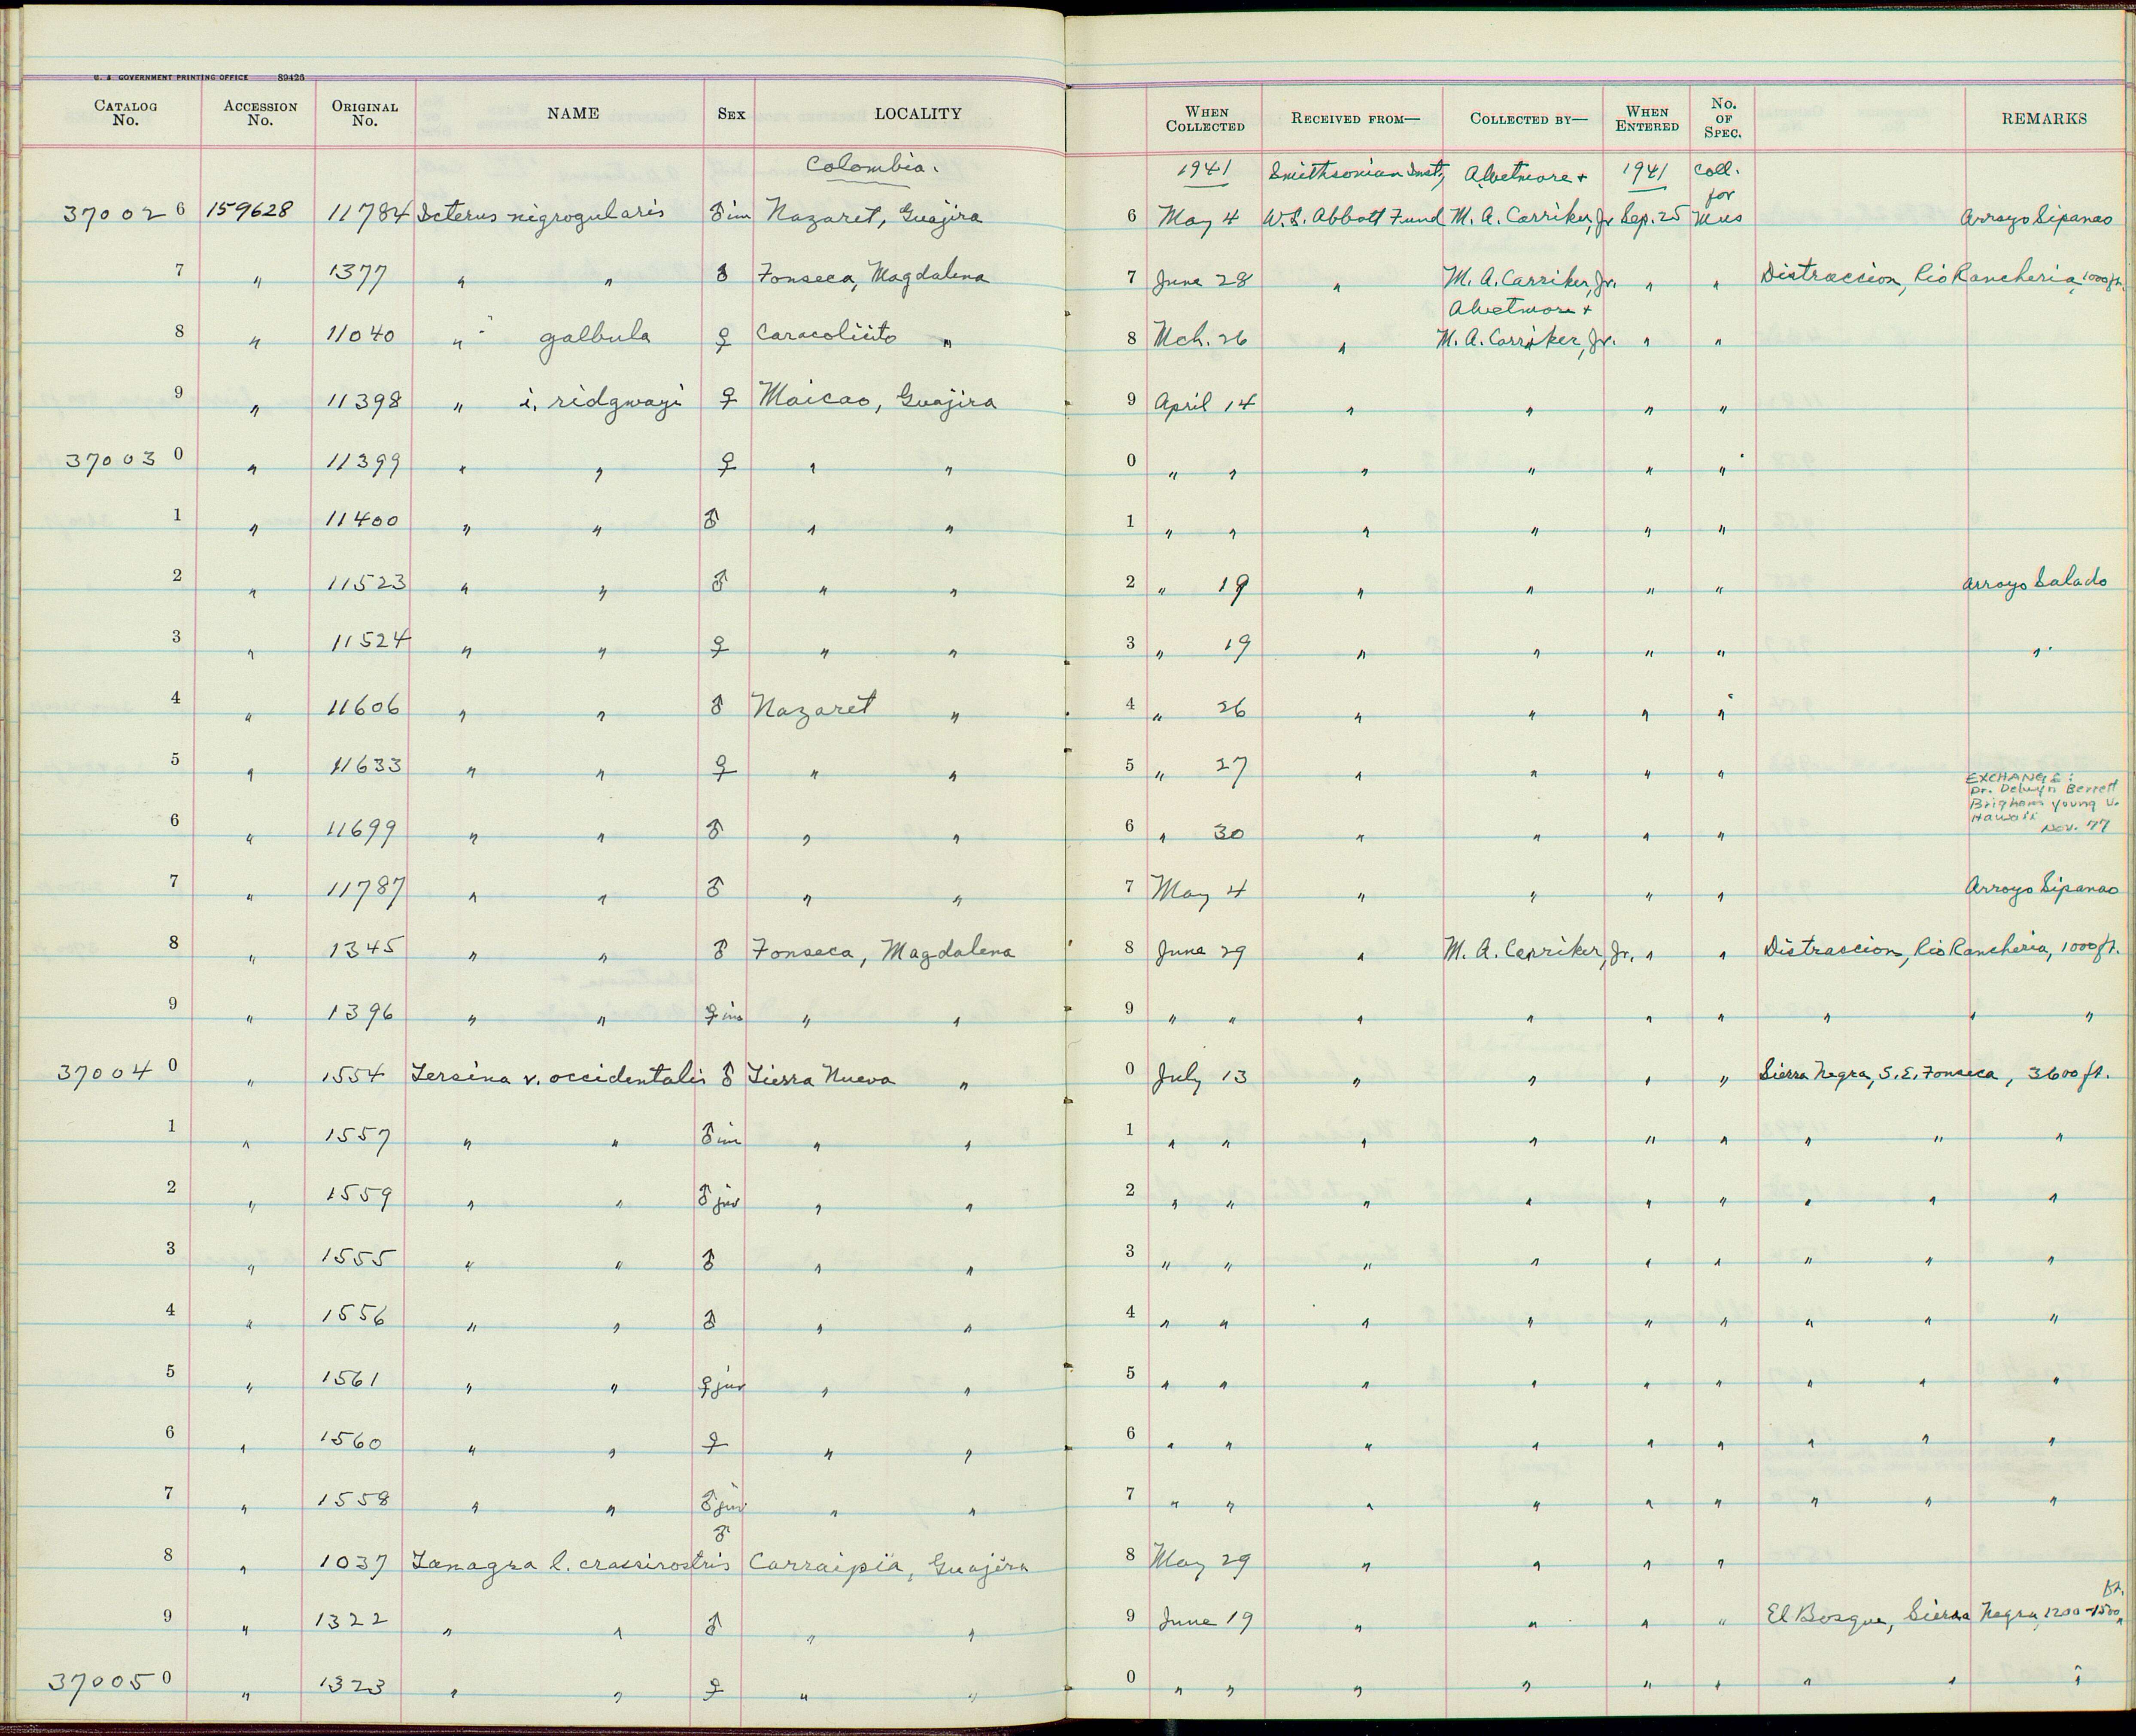 U. S. GOVERNMENT PRINTING OFFICE 89426
CATALOG No. ACCESSION No. ORIGINAL No. NAME SEX LOCALITY WHEN COLLECTED RECEIVED FROM— COLLECTED BY— WHEN ENTERED No. OF SPEC. REMARKS
Colombia. 1941 Smithsonian Inst., AWetmore + 1941 Coll. for
370026 159628 11784 Icterus nigrogularis ♂ im Nazaret, Guajira 6 May 4 W. L. Abbott Fund M. A. Carriker, Jr Sep. 25 Mus Arroyo Sipanao
7 " 1377 " " ♂ Fonseca, Magdalena 7 June 28 " M. A. Carriker, Jr. " " Distraccion, Rio Rancheria, 1000 ft.
AWetmore +
8 " 11040 " galbula ♀ Caracolicito " 8 Mch. 26 " M. A. Carriker, Jr. " "
9 " 11398 " i. ridgwayi ♀ Maicao, Guajira 9 April 14 " " " "
370030 " 11399 " " ♀ " " 0 " " " " " "
1 " 11400 " " ♂ " " 1 " " " " " "
2 " 11523 " " ♂ " " 2 " 19 " " " " Arroyo Salado
3 " 11524 " " ♀ " " 3 " 19 " " " " "
4 " 11606 " " ♂ Nazaret " 4 " 26 " " " "
5 " 11633 " " ♀ " " 5 " 27 " " " "
EXCHANGE:
Dr. Delwyn Berrett
Brigham Young U.
Hawaii
Nov. 77
6 " 11699 " " ♂ " " 6 " 30 " " " "
7 " 11787 " " ♂ " " 7 May 4 " " " " Arroyo Sipanao
8 " 1345 " " ♂ Fonseca, Magdalena 8 June 29 " M. A. Carriker, Jr. " " Distraccion, Rio Rancheria, 1000 ft.
9 " 1396 " " ♀ im " " 9 " " " " " " " " "
370040 " 1554 Tersina v. occidentalis ♂ Tierra Nueva " 0 July 13 " " " " Sierra Negra, S. E. Fonseca, 3600 ft.
1 " 1557 " " ♂ im " " 1 " " " " " " " " "
2 " 1559 " " ♂ juv " " 2 " " " " " " " " "
3 " 1555 " " ♂ " " 3 " " " " " " " " "
4 " 1556 " " ♂ " " 4 " " " " " " " " "
5 " 1561 " " ♀ juv " " 5 " " " " " " " " "
6 " 1560 " " ♀ " " 6 " " " " " " " " "
7 " 1558 " " ♂ juv " " 7 " " " " " " " " "
8 " 1037 Tanagra l. crassirostris ♂ Carraipia, Guajira 8 May 29 " " " "
9 " 1322 " " ♂ " " 9 June 19 " " " " El Bosque, Sierra Negra, 1200-1500 ft.
370050 " 1323 " " ♀ " " 0 " " " " " " " " "